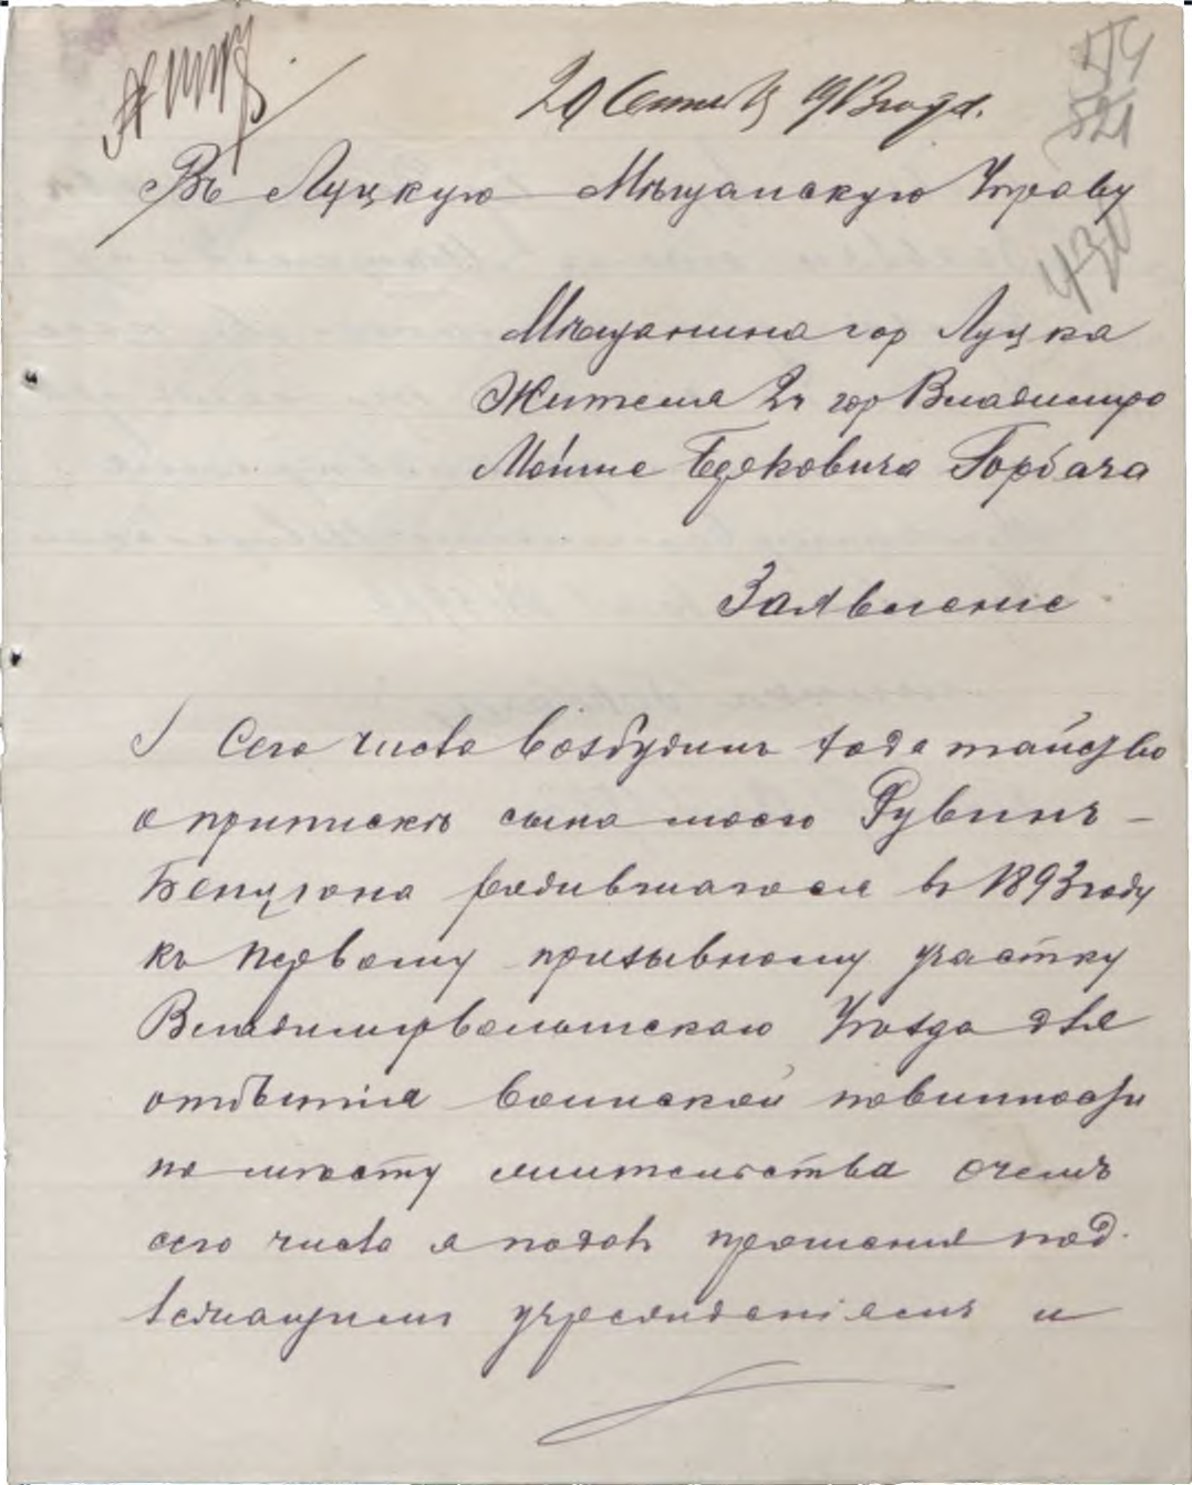 20 Сентяб 1913 года.
514
521
Въ Луцкую Мѣщанскую Управу
430
Мѣщанина гор Луцка
Жителя въ гор Владимiро
Мойше Берковича Горбача
Заявленiе
Сего числа возбудилъ ходатайство
о припискѣ сына моего Рувинъ-
Бенцiона родившагося въ 1893 году
къ первому призывному участку
Владимiрволынскаго Уѣзда для
отбытiя воинской повинности
по мѣсту жительства о чемъ
сего числа я подалъ прошенiя под-
лежащимъ учрежденiямъ и